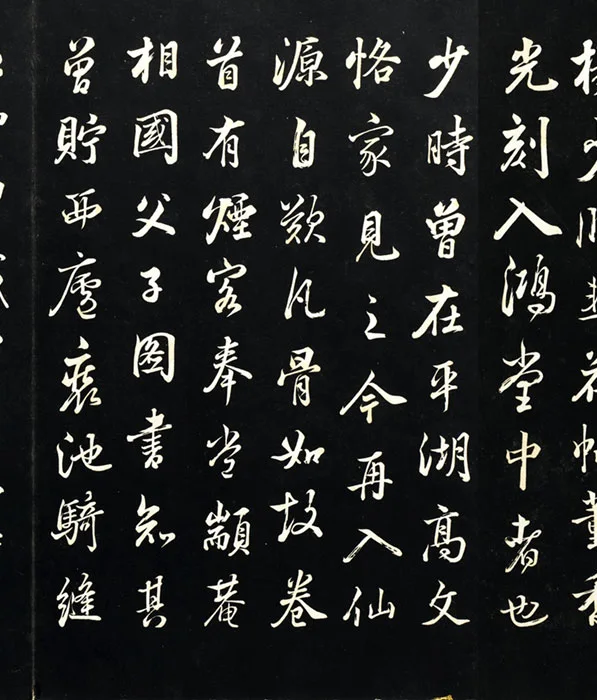 光刻入鴻堂中者也
少時曾在平湖高文
恪家見之今再入仙
源自歎凡骨如故卷
首有煙客奉常顓菴
相國父子圖書知其
曾貯西廬池騎縫